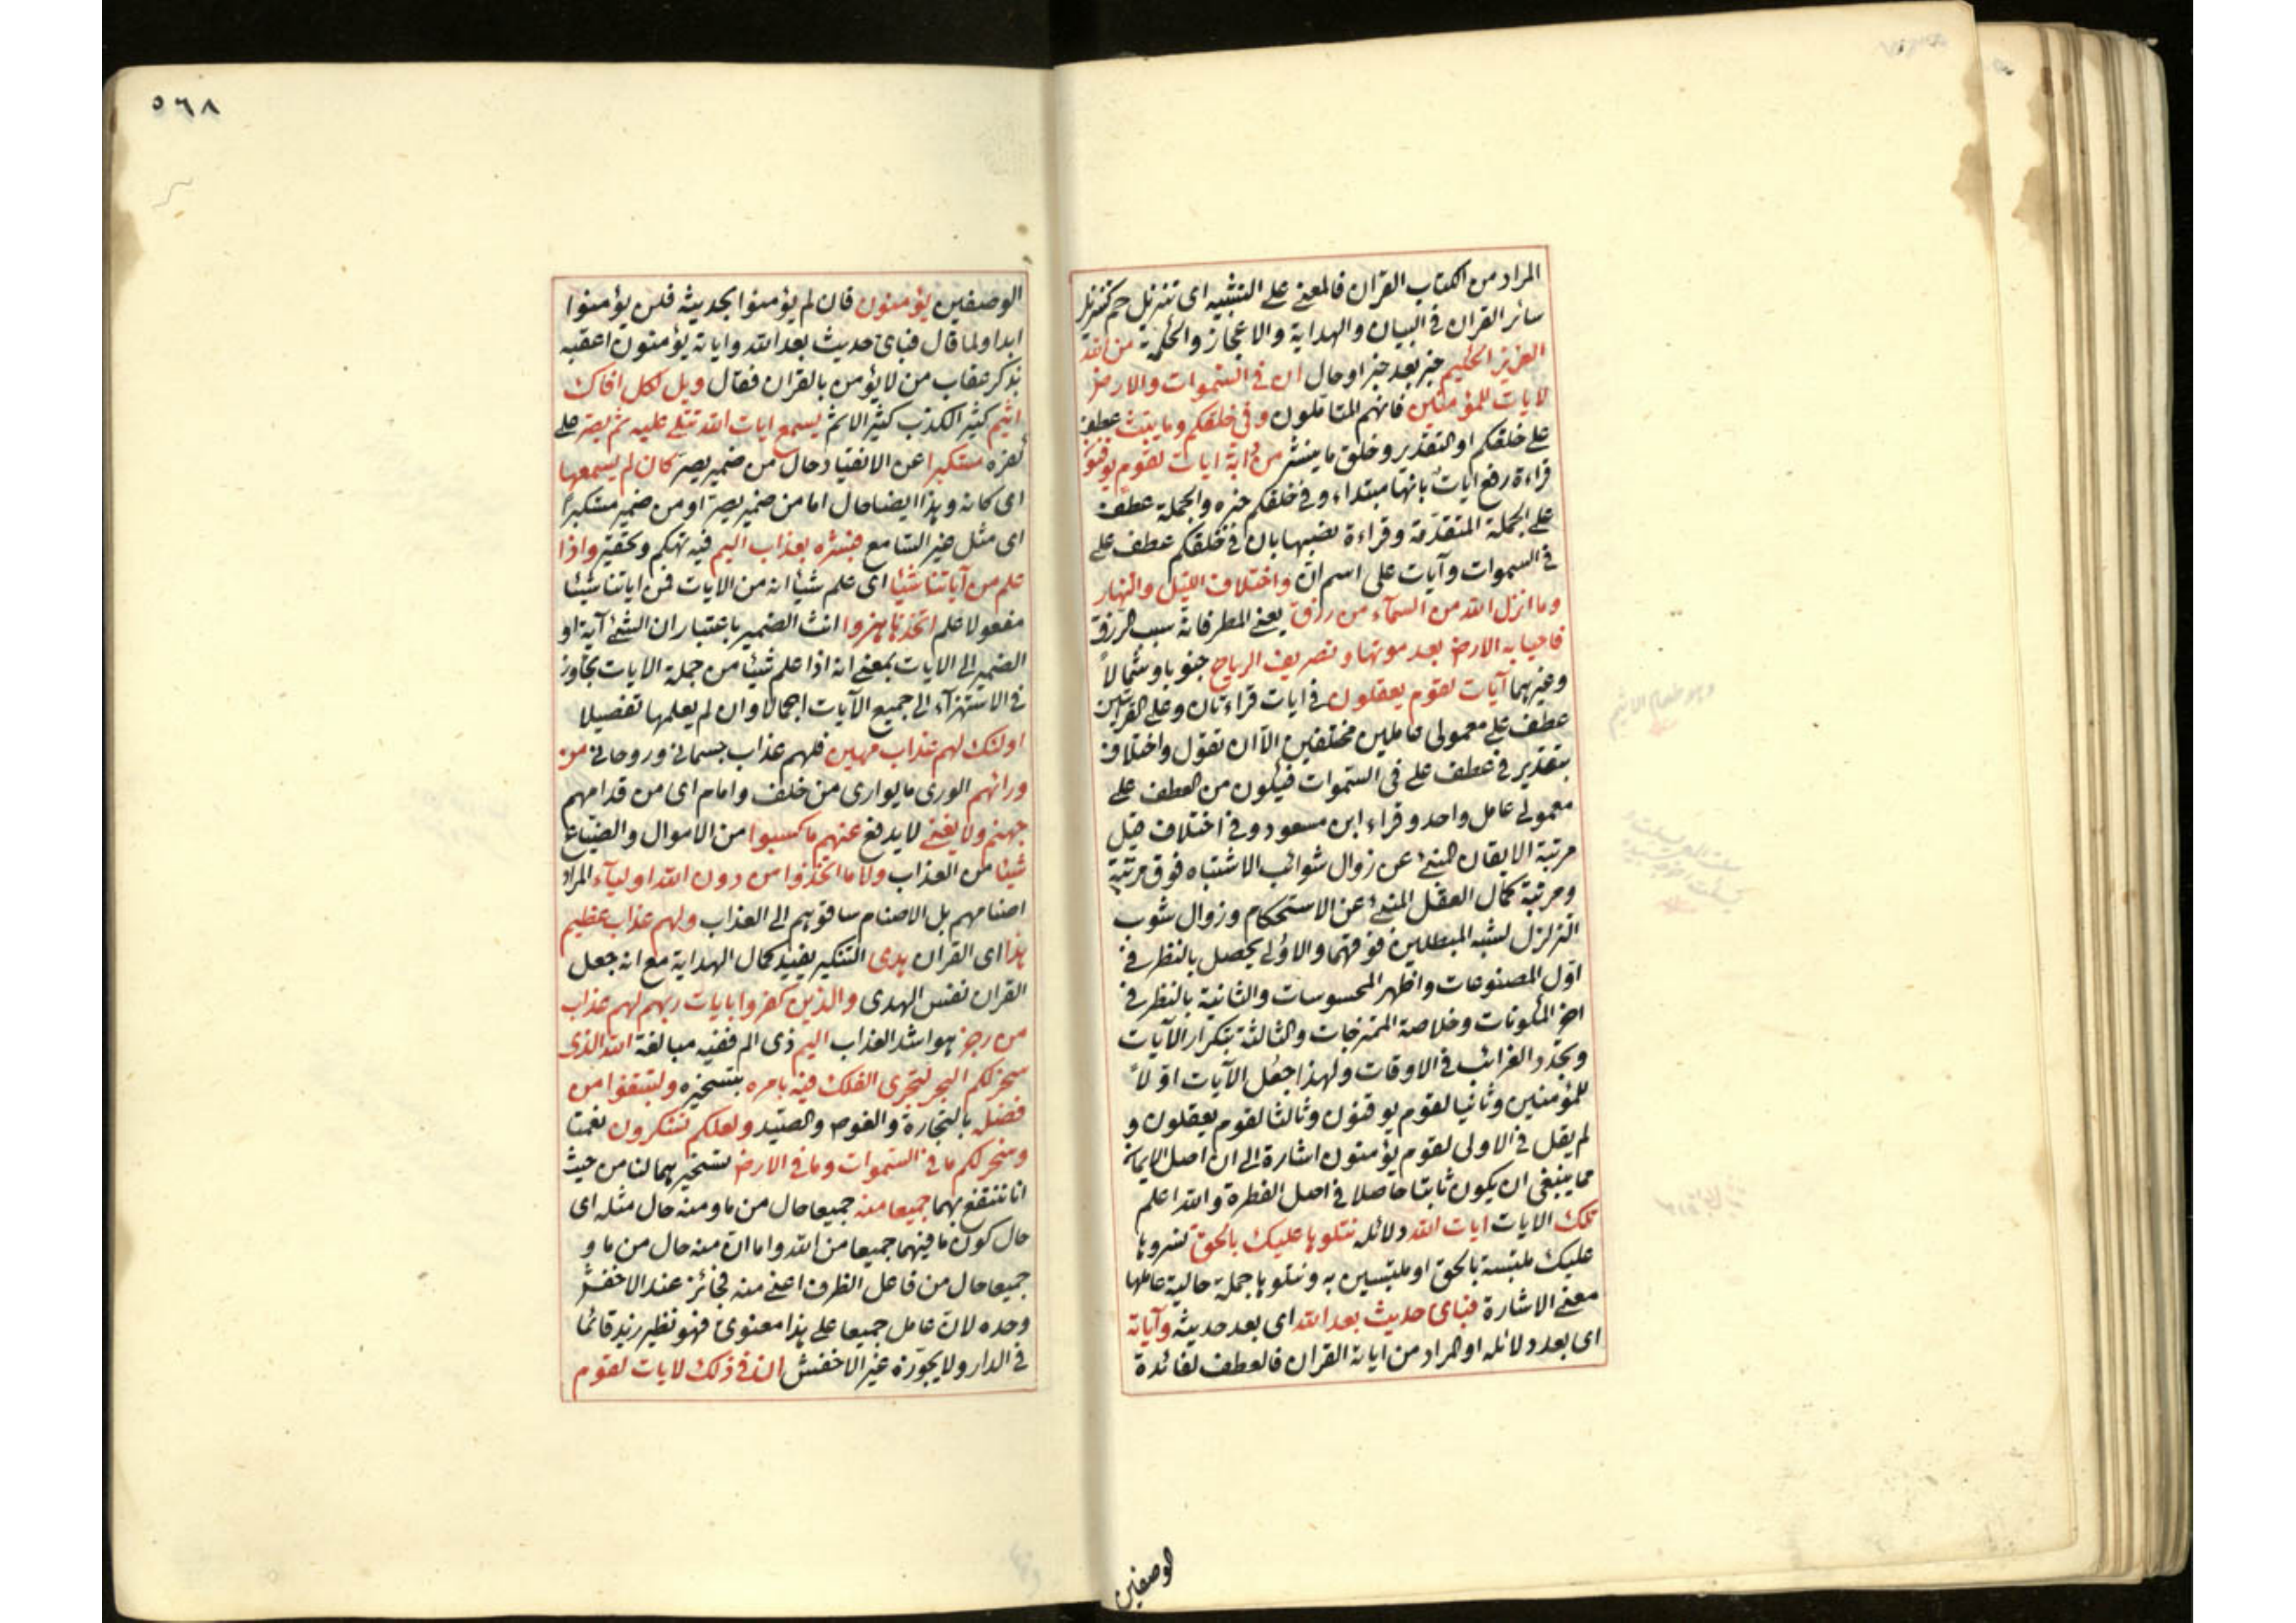 المراد من الكتاب القران فالمعنى على التشبيه اى تنزيل حم كتنزيل
سائر القران في البيان والهداية والاعجاز والحكمة من الله
العزيز الحكيم خبر بعد خبر او حال ان في السموات والارض
لايات للمؤمنين فانهم المتأملون وفي خلقكم وما يبث عطف
على خلقكم او التقدير وخلق ما ينشر من دابة ايات لقوم يوقنون
قراءة رفع ايات بانها مبتداء وفي خلقكم خبره والجملة عطف
على الجملة المتقدمة وقراءة نصبها بان في خلقكم عطف على
في السموات وآيات على اسم ان واختلاف الليل والنهار
وما انزل الله من السمآء من رزق يعنى المطر فانه سبب الرزق
فاحيا به الارض بعد موتها وتصريف الرياح جنوبا وشمالاً
وغيرهما آيات لقوم يعقلون في ايات قراءتان وعلى القراءتين
عطف على معمولى عاملين مختلفين الا ان نقول واختلاف
بتقدير في عطف على في السموات فيكون من العطف على
معمولى عامل واحد وقراء ابن مسعود وفي اختلاف قيل
مرتبة الايقان المنبئ عن زوال شوائب الاشتباه فوق مرتبة
ومرتبة كمال العقل المنبئ عن الاستحكام وزوال شوب
التزلزل لشبه المبطلين فوقهما والاولى يحصل بالنظر في
اوّل المصنوعات واظهر المحسوسات والثانية بالنظر في
اخر المكونات وخلاصة الممتزجات والثالثة بتكرار الآيات
وتجدد الغرائب في الاوقات ولهذا جعل الآيات اوّلاً
للمؤمنين وثانيا لقوم يوقنون وثالثا لقوم يعقلون و
لم يقل في الاولى لقوم يؤمنون اشارة الى ان اصل الايمان
مما ينبغى ان يكون ثابتا حاصلا في اصل الفطرة والله اعلم
تلك الايات ايات الله دلائله نتلوها عليك بالحق نسردها
عليك ملتبسة بالحق او ملتبسين به ونتلوها جملة حالية عاملها
معنى الاشارة فباى حديث بعد الله اى بعد حديثه وآياته
اى بعد دلائله او المراد من اياته القران فالعطف لفائدة
الوصفين
٥٦٨
الوصفين يؤمنون فان لم يؤمنوا بحديثه فلن يؤمنوا
ابدا ولما قال فباى حديث بعد الله واياته يؤمنون اعقبه
بذكر عقاب من لا يؤمن بالقران فقال ويل لكل افاك
اثيم كثير الكذب كثير الاثم يسمع ايات الله تتلى عليه ثم يصر على
كفره مستكبرا عن الانقياد حال من ضمير يصرّ كان لم يسمعها
اى كانه وهذا ايضا حال اما من ضمير يصرّ او من ضمير مستكبراً
اى مثل غير السامع فبشره بعذاب اليم فيه تهكم وتحقير واذا
علم من آياتنا شيئا اى علم شيئا انه من الايات فمن اياتنا شيئا
مفعولا علم اتخذها هزوا انث الضمير باعتبار ان الشئ آية او
الضمير الى الايات بمعنى انه اذا علم شيئا من جملة الايات تجاوز
في الاستهزآء الى جميع الآيات اجمالا وان لم يعلمها تفصيلا
اولئك لهم عذاب مهين فلهم عذاب جسمانى وروحانى من
ورائهم الورى ما يوارى من خلف وامام اى من قدامهم
جهنم ولا يغنى لا يدفع عنهم ما كسبوا من الاموال والضياع
شيئا من العذاب ولا ما اتخذوا من دون الله اوليآء المراد
اصنامهم بل الاصنام ساقوهم الى العذاب ولهم عذاب عظيم
هذا اى القران هدى التنكير يفيد كمال الهداية مع انه جعل
القران نفس الهدى والذين كفروا بايات ربهم لهم عذاب
من رجز هو اشد العذاب اليم ذى الم ففيه مبالغة الله الذى
سخر لكم البحر لتجرى الفلك فيه بامره بتسخيره ولتبتغوا من
فضله بالتجارة والغوص والصيد ولعلكم تشكرون نعمتنا
وسخر لكم ما في السموات وما في الارض تسخيرهما لنا من حيث
انا ننتفع بهما جميعا منه جميعا حال من ما ومنه حال مثله اى
حال كون ما فيهما جميعا من الله واما ان منه حال من ما و
جميعا حال من فاعل الظرف اعنى منه فجائز عند الاخفش
وحده لان عامل جميعا على هذا معنوى فهو نظير زيد قائما
في الدار ولا يجوّزه غير الاخفش ان في ذلك لايات لقوم